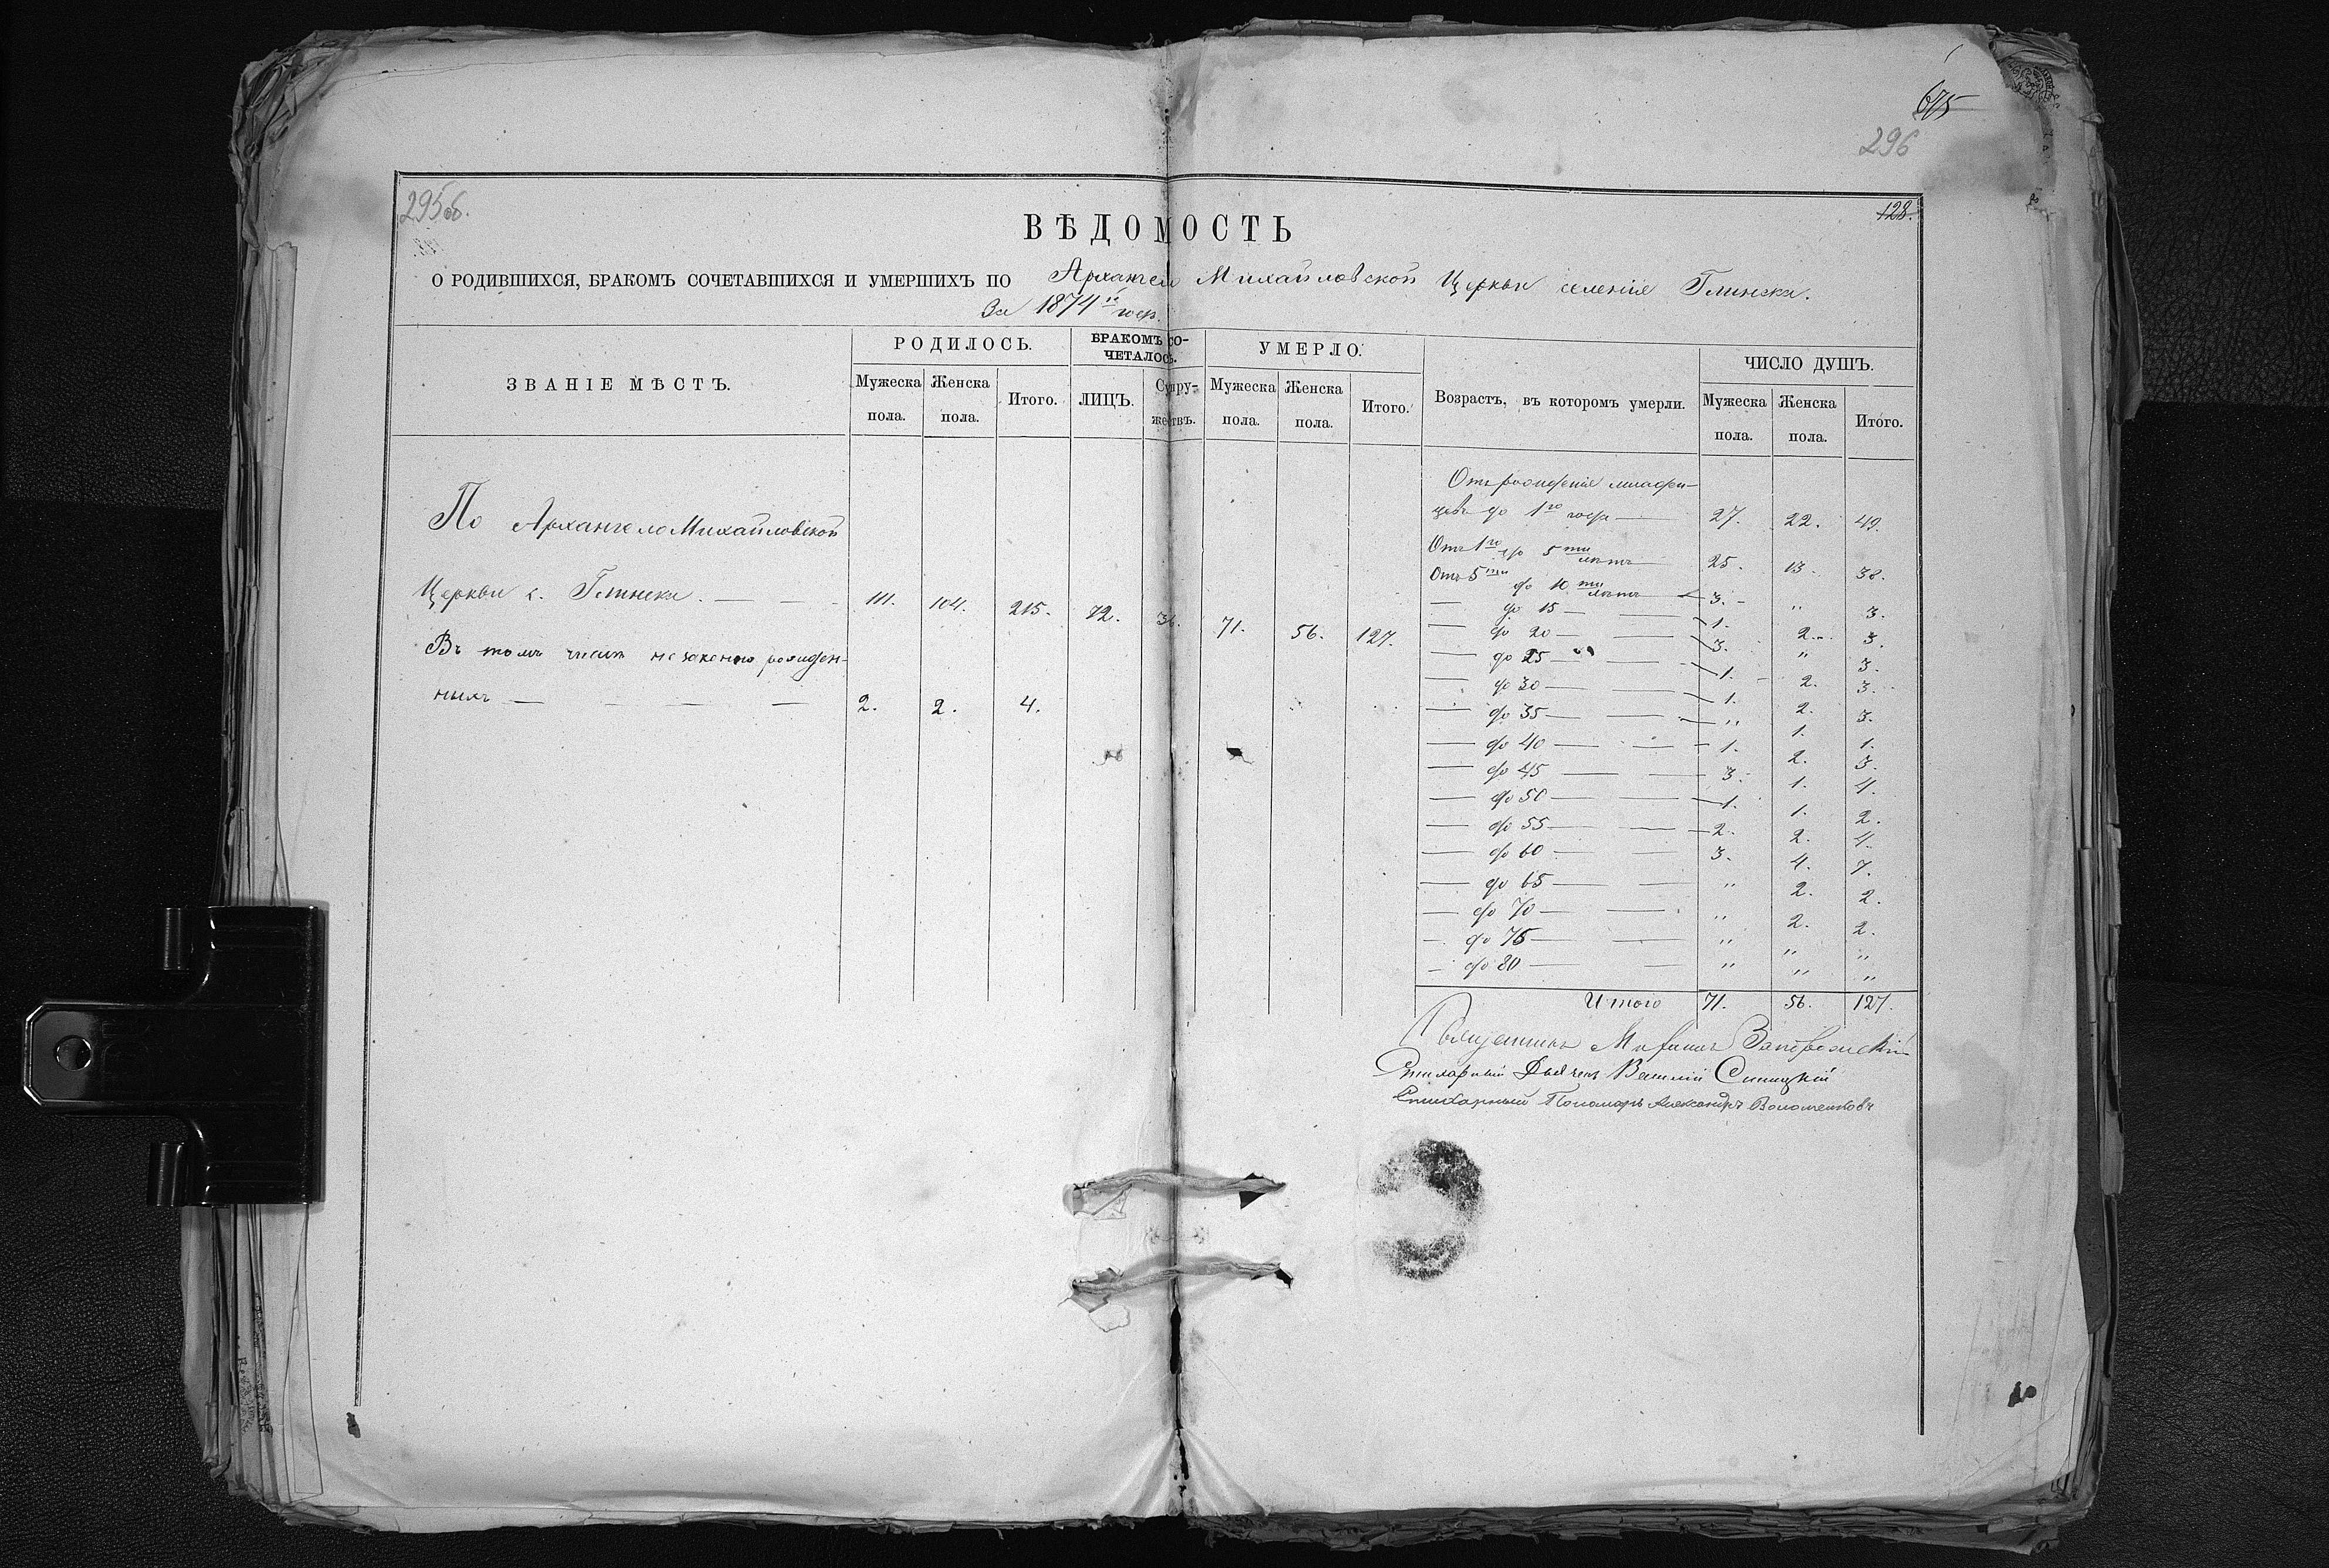 675
296
295об.
128.
ВѢДОМОСТЬ
О РОДИВШИХСЯ, БРАКОМЪ СОЧЕТАВШИХСЯ И УМЕРШИХЪ ПО Архангело Михайловской Церкви селенія Глинска.
За 1874й годъ.
ЗВАНІЕ МѢСТЪ.
РОДИЛОСЬ.
БРАКОМЪ СО-
ЧЕТАЛОСЬ.
УМЕРЛО.
Возрастъ, въ которомъ умерли.
ЧИСЛО ДУШЪ.
Мужеска пола.
Женска пола.
Итого.
ЛИЦЪ.
Супру-
жествъ.
Мужеска пола.
Женска пола.
Итого.
Мужеска пола.
Женска пола.
Итого.
По Архангело Михайловской
Церкви с. Глинска. — — — 111. 104. 215. 72. 36. 71. 56. 127.
Въ томъ числѣ незаконно рожден-
ныхъ — — — — 2. 2. 4.
Отъ рожденія младен-
цевъ до 1го года — 27. 22. 49.
Отъ 1го до 5ти лѣтъ — 25. 13. 38.
Отъ 5ти до 10ти лѣтъ — 3. " 3.
— до 15 — — 1. 2. 3.
— до 20 — — 3. " 3.
— до 25 — — 1. 2. 3.
— до 30 — — 1. 2. 3.
— до 35 — — " 1. 1.
— до 40 — — 1. 2. 3.
— до 45 — — 3. 1. 4.
— до 50 — — 1. 1. 2.
— до 55 — — 2. 2. 4.
— до 60 — 3. 4. 7.
— до 65 — — " 2. 2.
— до 70 — — " 2. 2.
— до 75 — — " " "
— до 80 — — " " "
Итого 71. 56. 127.
Священникъ
Стихарный Дьячекъ Василій Синицкій
Стихарный Пономарь Александръ